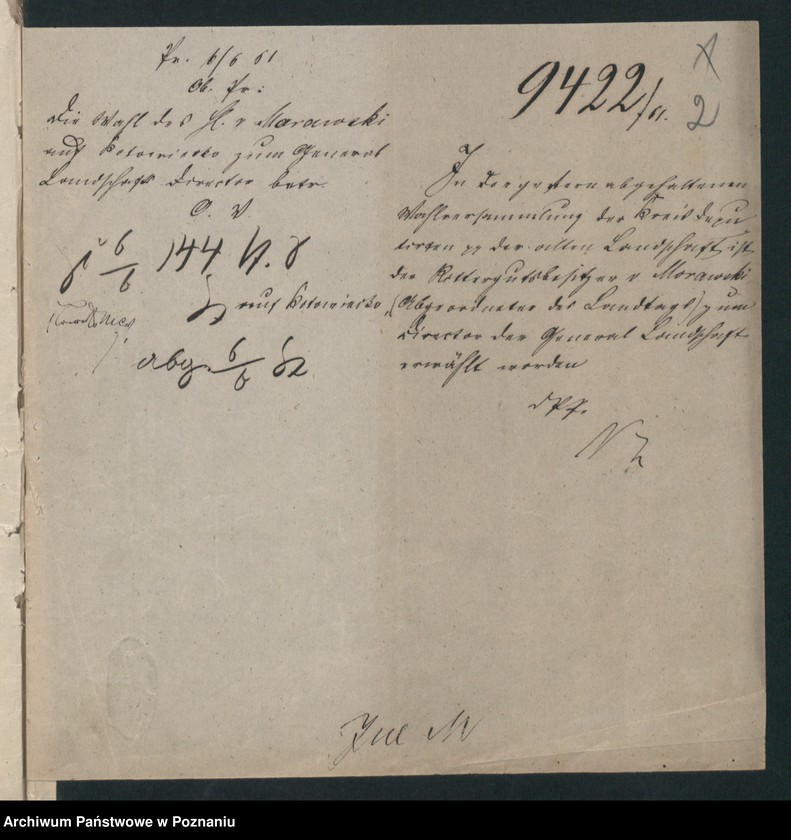 Pr. 6/6 61
Ob. Pr:
Die Wahl des H. v Morawski
auf Kotowiecko zum General
Landschafts Director betr.
C. V
6/6 144
auf Kotowiecko
abg. 6/6
9422/61.
2
In der gestern abgehaltenen
Wahlversammlung der Kreis Depu
tirten pp der alten Landschaft ist
der Rittergutsbesitzer v Morawski
(Abgeordneter des Landtags) zum
Director der General Landschaft
erwählt worden
Archiwum Państwowe w Poznaniu